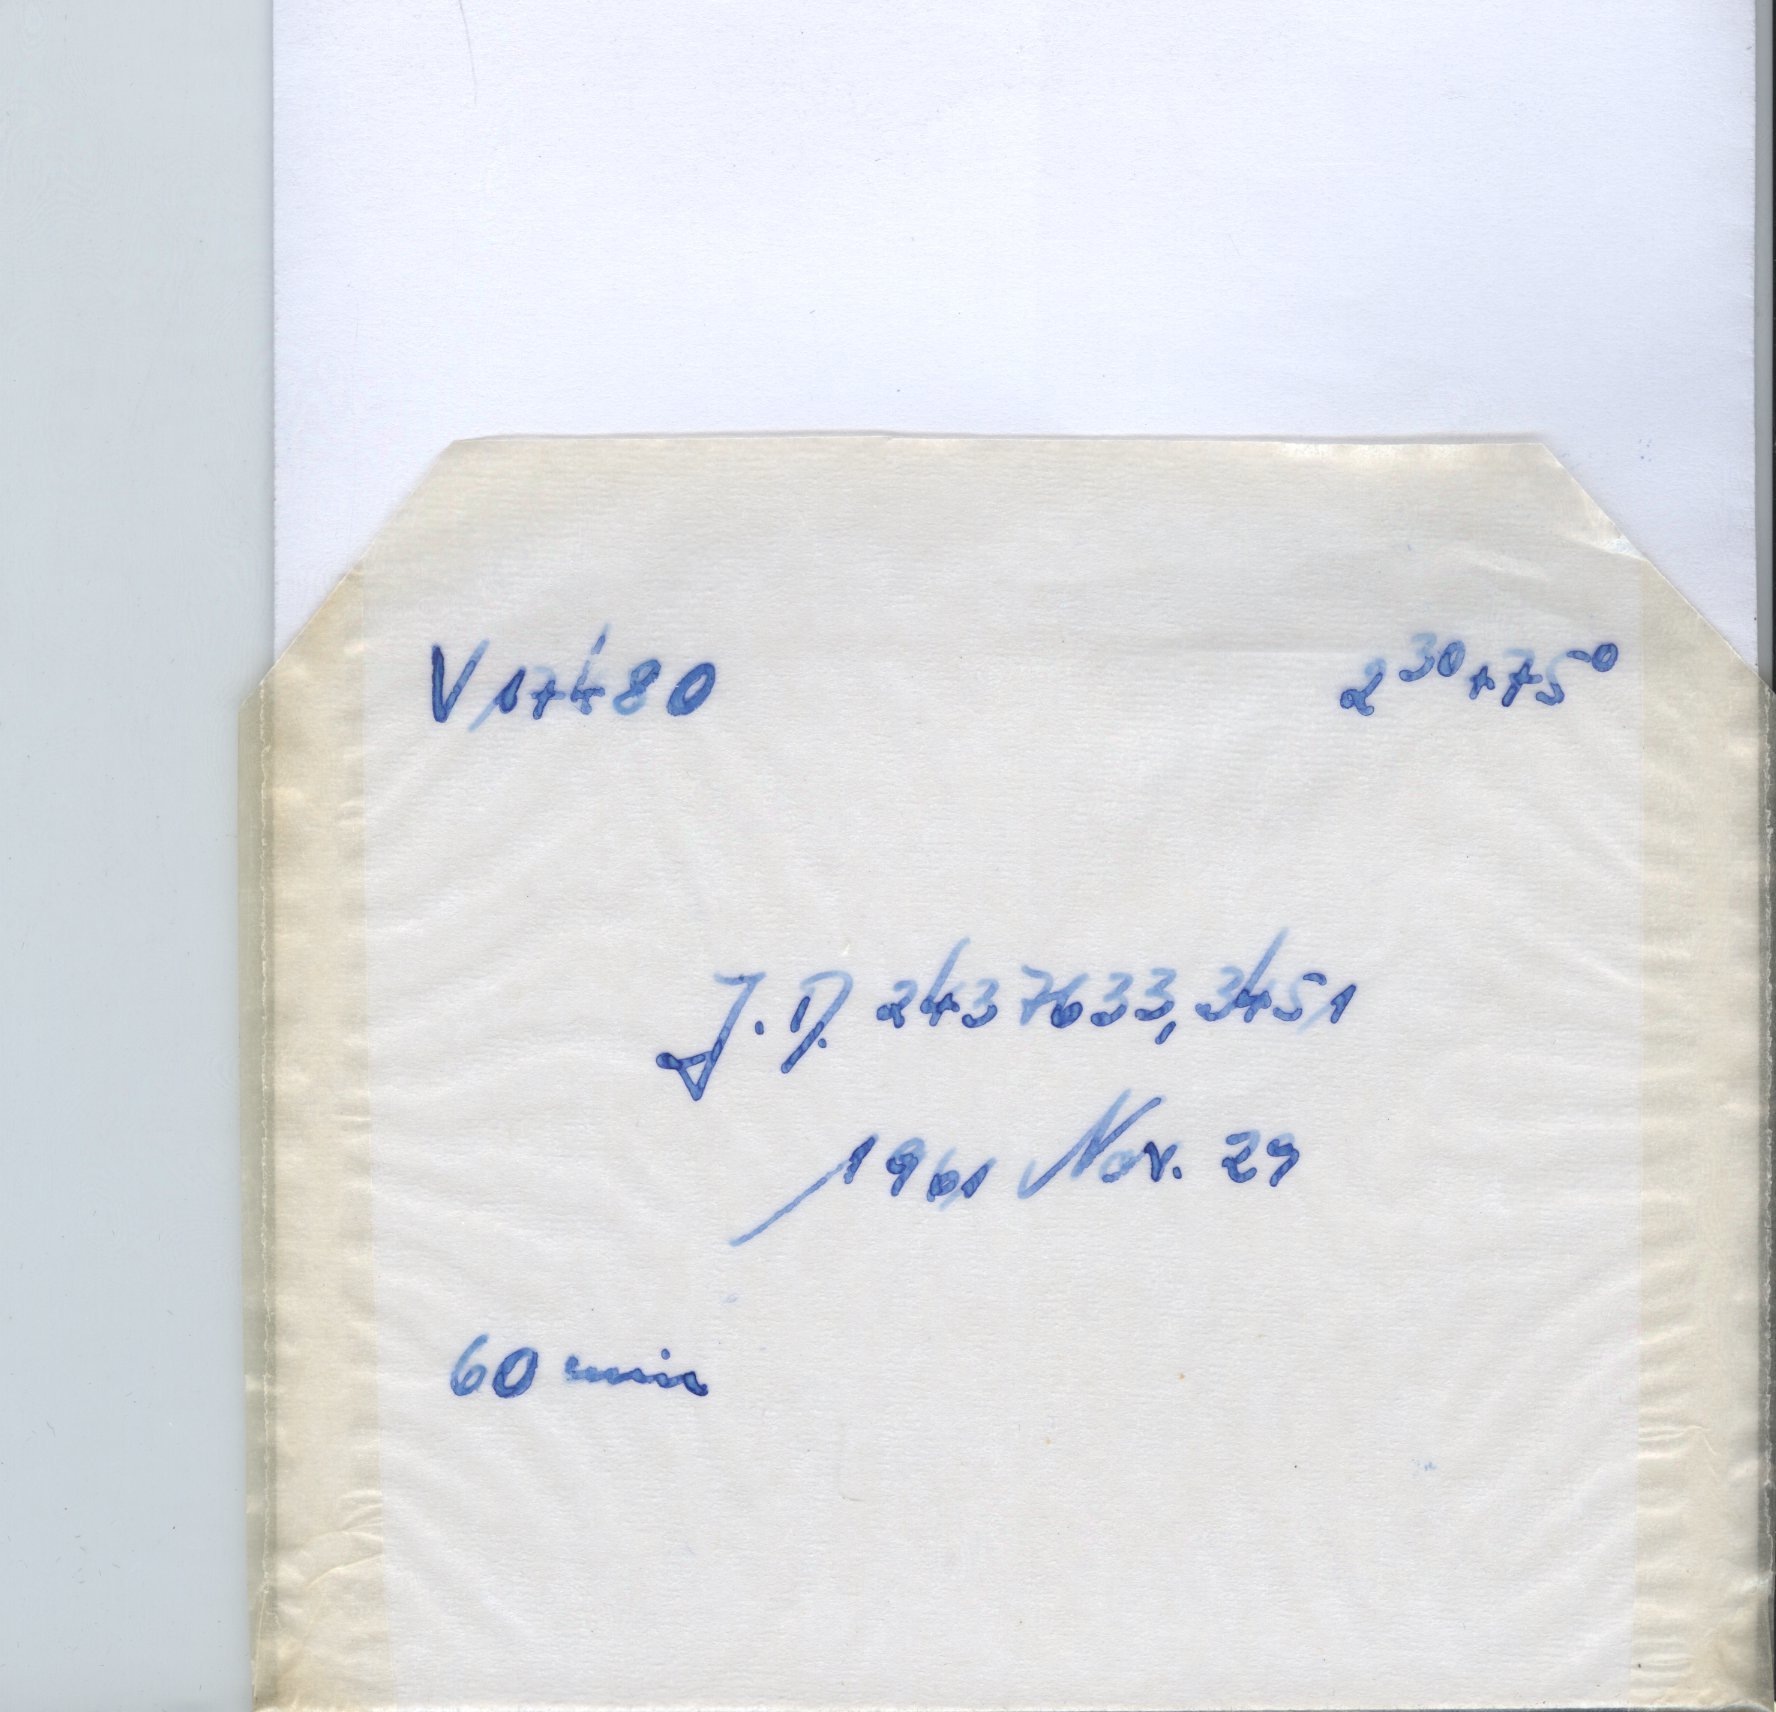 V 17480
2³⁰+75⁰
J.D. 2437633,3451
1961 Nov. 29
60 min